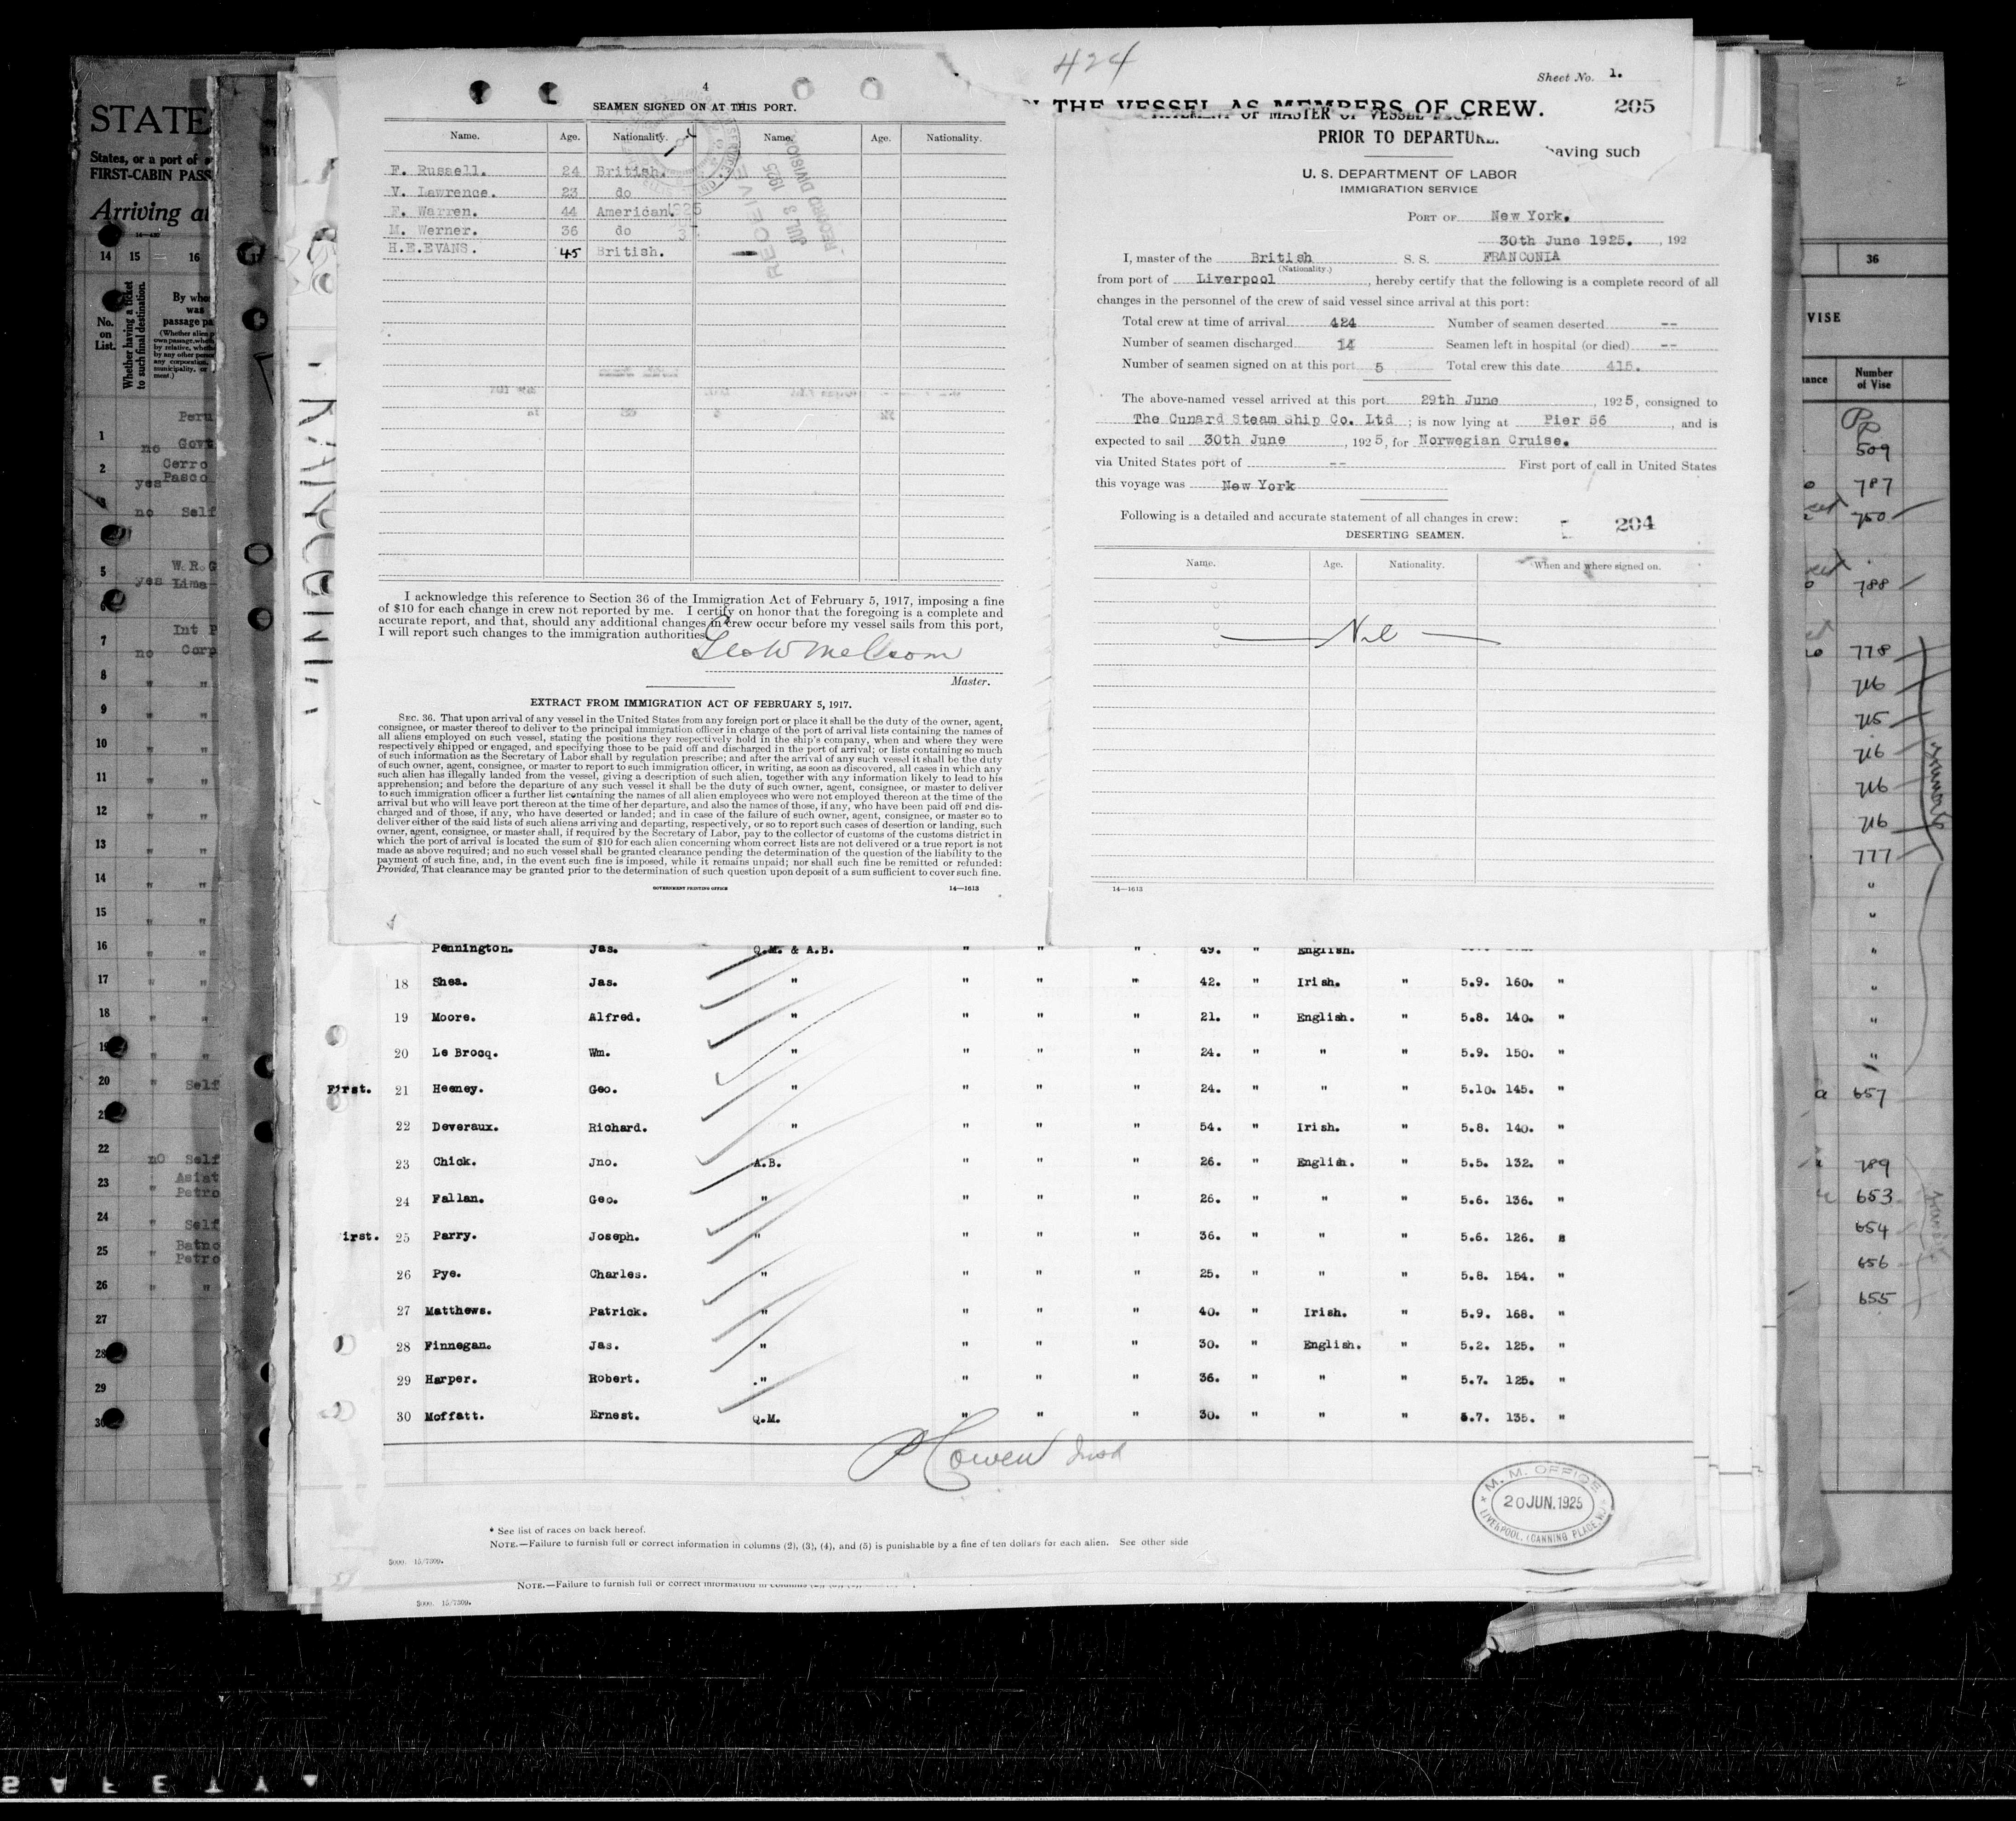 424
Sheet No. 1.
THE VESSEL AS MEMBERS OF CREW.
205
PRIOR TO DEPARTURE.
having such
U. S. DEPARTMENT OF LABOR
IMMIGRATION SERVICE
PORT OF New York.
30th June 1925. , 192
I, master of the British S. S. FRANCONIA
(Nationality.)
from port of Liverpool , hereby certify that the following is a complete record of all
changes in the personnel of the crew of said vessel since arrival at this port:
Total crew at time of arrival 424 Number of seamen deserted --
Number of seamen discharged 14 Seamen left in hospital (or died) --
Number of seamen signed on at this port 5 Total crew this date 415.
The above-named vessel arrived at this port 29th June , 1925, consigned to
The Cunard Steam Ship Co. Ltd ; is now lying at Pier 56 , and is
expected to sail 30th June , 1925, for Norwegian Cruise.
via United States port of -- First port of call in United States
this voyage was New York
Following is a detailed and accurate statement of all changes in crew:
204
DESERTING SEAMEN.
Name. Age. Nationality. When and where signed on.
Nil
14—1613
4
SEAMEN SIGNED ON AT THIS PORT.
Name. Age. Nationality. Name. Age. Nationality.
F. Russell. 24 British.
V. Lawrence. 23 do
F. Warren. 44 American.
M. Werner. 36 do
H.E.EVANS. 45 British.
RECEIVED
JUL 3 1925
RECORD DIVISION
I acknowledge this reference to Section 36 of the Immigration Act of February 5, 1917, imposing a fine
of $10 for each change in crew not reported by me. I certify on honor that the foregoing is a complete and
accurate report, and that, should any additional changes in crew occur before my vessel sails from this port,
I will report such changes to the immigration authorities.
Master.
EXTRACT FROM IMMIGRATION ACT OF FEBRUARY 5, 1917.
SEC. 36. That upon arrival of any vessel in the United States from any foreign port or place it shall be the duty of the owner, agent,
consignee, or master thereof to deliver to the principal immigration officer in charge of the port of arrival lists containing the names of
all aliens employed on such vessel, stating the positions they respectively hold in the ship's company, when and where they were
respectively shipped or engaged, and specifying those to be paid off and discharged in the port of arrival; or lists containing so much
of such information as the Secretary of Labor shall by regulation prescribe; and after the arrival of any such vessel it shall be the duty
of such owner, agent, consignee, or master to report to such immigration officer, in writing, as soon as discovered, all cases in which any
such alien has illegally landed from the vessel, giving a description of such alien, together with any information likely to lead to his
apprehension; and before the departure of any such vessel it shall be the duty of such owner, agent, consignee, or master to deliver
to such immigration officer a further list containing the names of all alien employees who were not employed thereon at the time of the
arrival but who will leave port thereon at the time of her departure, and also the names of those, if any, who have been paid off and dis-
charged and of those, if any, who have deserted or landed; and in case of the failure of such owner, agent, consignee, or master so to
deliver either of the said lists of such aliens arriving and departing, respectively, or so to report such cases of desertion or landing, such
owner, agent, consignee, or master shall, if required by the Secretary of Labor, pay to the collector of customs of the customs district in
which the port of arrival is located the sum of $10 for each alien concerning whom correct lists are not delivered or a true report is not
made as above required; and no such vessel shall be granted clearance pending the determination of the question of the liability to the
payment of such fine, and, in the event such fine is imposed, while it remains unpaid; nor shall such fine be remitted or refunded:
Provided, That clearance may be granted prior to the determination of such question upon deposit of a sum sufficient to cover such fine.
GOVERNMENT PRINTING OFFICE 14—1613
Pennington. Jas. Q.M. & A.B. " " " 49. " English.
18 Shea. Jas. " " " " 42. " Irish. " 5.9. 160. "
19 Moore. Alfred. " " " " 21. " English. " 5.8. 140. "
20 Le Brocq. Wm. " " " " 24. " " " 5.9. 150. "
First. 21 Heeney. Geo. " " " " 24. " " " 5.10. 145. "
22 Deveraux. Richard. " " " " 54. " Irish. " 5.8. 140. "
23 Chick. Jno. A.B. " " " 26. " English. " 5.5. 132. "
24 Fallan. Geo. " " " " 26. " " " 5.6. 136. "
irst. 25 Parry. Joseph. " " " " 36. " " " 5.6. 126. "
26 Pye. Charles. " " " " 25. " " " 5.8. 154. "
27 Matthews. Patrick. " " " " 40. " Irish. " 5.9. 168. "
28 Finnegan. Jas. " " " " 30. " English. " 5.2. 125. "
29 Harper. Robert. " " " " 36. " " " 5.7. 125. "
30 Moffatt. Ernest. Q.M. " " " 30. " " " 5.7. 135. "
M. M. OFFICE
20 JUN. 1925
LIVERPOOL, (CANNING PLACE, No.)
* See list of races on back hereof.
NOTE.—Failure to furnish full or correct information in columns (2), (3), (4), and (5) is punishable by a fine of ten dollars for each alien. See other side
5000. 15/7309.
NOTE.—Failure to furnish full or correct information in columns
5000. 15/7309.
STATE
States, or a port of
FIRST-CABIN PASS
Arriving at
14 15 16
No. on List.
Whether having a ticket to such final destination.
By whom was passage pa
1 no Peru Govt
2 yes Cerro Pasco
no Self
5 yes W.R.G Lima
7 no Int P Corp
8 " "
9 " "
10 " "
11 " "
12 " "
13 " "
14 " "
15 " "
16 " "
17 " "
18 " "
19 " "
20 " Self
22 no Self
23 " Asiat Petro
24 " Self
25 " Batno Petro
26 " "
27
28
29
30
2
36
VISE
ance Number of Vise
509
787
750
788
778
716
715
716
716
716
777
"
"
"
"
"
"
657
789
653
654
656
655
SAFETY